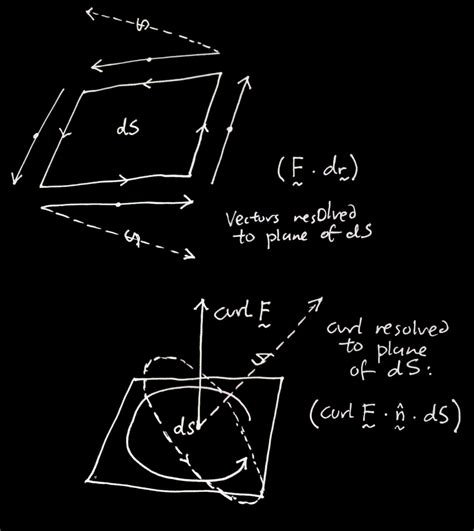 dS
(F · dr)
Vectors resolved
to plane of dS
curl F
curl resolved
to plane
of dS:
dS
(curl F · n̂ · dS)